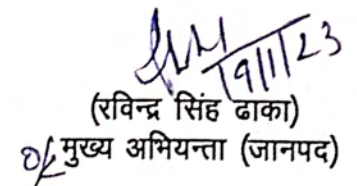 19/11/23
(रविन्द्र सिंह ढाका)
मुख्य अभियन्ता (जानपद)